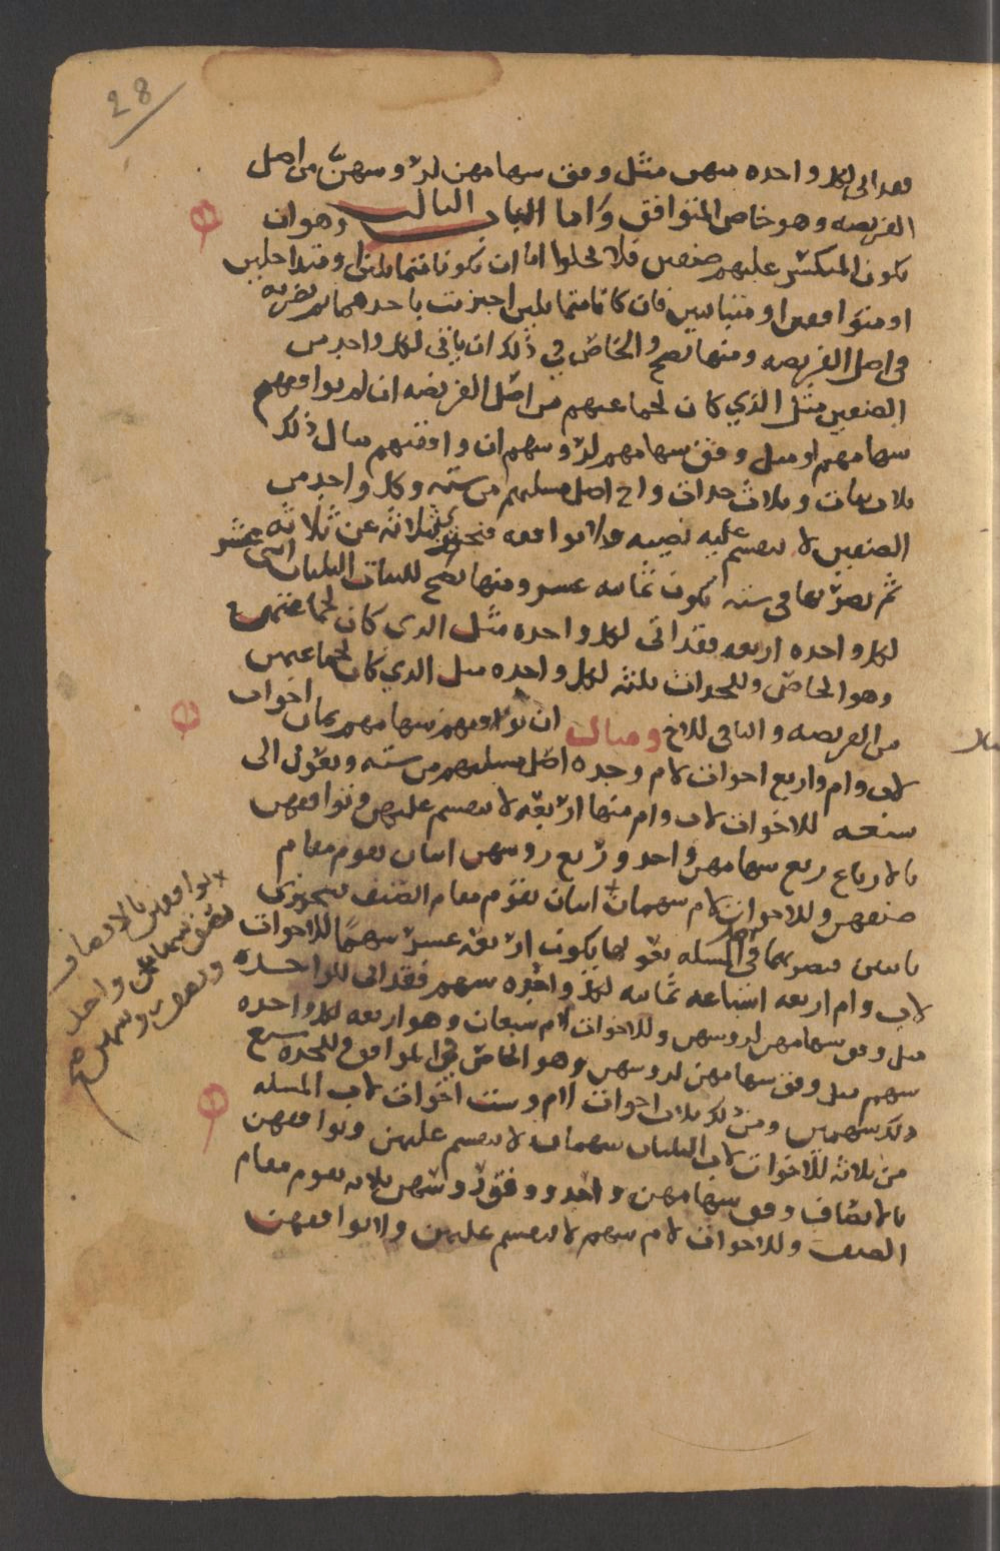 28
فقد اتى لكل واحده منهن مثل وفق سهامهن لروسهن من اصل
الفريضه وهو خاص المتوافق واما الباب الثالث وهو ان
يكون المنكسر عليهم صنفين فلا يخلوا اما ان يكونا متماثلين او متداخلين
او متوافقين او متباينين فان كانا متماثلين اجتزيت باحدهما ثم تضربه
في اصل الفريضه ومنها تصح والخاص في ذلك ان ياتي لكل واحد من
الصنفين مثل الذي كان لجماعتهم من اصل الفريضه ان لم توافقهم
سهامهم او مثل وفق سهامهم لروسهم ان وافقتهم مثال ذلك
ثلاث بنات وثلاث جدات واخ اصل مسلتهم من سته وكل واحد من
الصنفين لا ينقسم عليه نصيبه ولا توافقه فتجتزي بثلاثه عن ثلاثه
ثم تضربها في سته تكون ثمانيه عشر ومنها تصح للبنات الثلثان اثنى عشر
لكل واحده اربعه فقد اتى لكل واحده مثل الذي كان لجماعتهن
وهو الخاص وللجدات ثلثه لكل واحده مثل الذي كان لجماعتهن
من الفريضه والباقي للاخ ومثال ان توافقهم سهامهم ثمان اخوات
لاب وام واربع اخوات لام وجده اصل مسلتهم من سته وتعول الى
سبعه للاخوات لاب وام منها اربعه لا تنقسم عليهن وتوافقهن
بالارباع ربع سهامهن واحد وربع روسهن اثنان تقوم مقام
صنفهن وللاخوات لام سهمان اثنان تقوم مقام الصنف فتجتزي
باثنين فتضربهما في المسله بعولها يكون اربعه عشر سهما للاخوات
لاب وام اربعه اسباعه ثمانيه لكل واحده سهم فقد اتى للواحده
مثل وفق سهامهن لروسهن وللاخوات لام سبعان وهو اربعه لكل واحده
سهم مثل وفق سهامهن لروسهن وهو الخاص في الموافق وللجده سبع
ذلك سهمين ومن ذلك ثلاث اخوات لام وست اخوات لاب المسله
من ثلاثه للاخوات لاب الثلثان سهمان لا تنقسم عليهن وتوافقهن
بالانصاف وفق سهامهن واحد ووفق روسهن ثلاثه تقوم مقام
الصنف وللاخوات لام سهم لا ينقسم عليهن ولا توافقهن
توافقهن بالانصاف
نصف سهامهن واحد
ونصف روسهن
صح